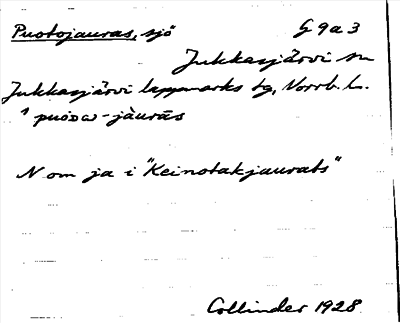 Puotojauras, sjö G 9 a 3
Jukkasjärvi sn
Jukkasjärvi lappmarks tg, Norrb. l.
N om ja i "Keinotakjaurats"
Collinder 1928